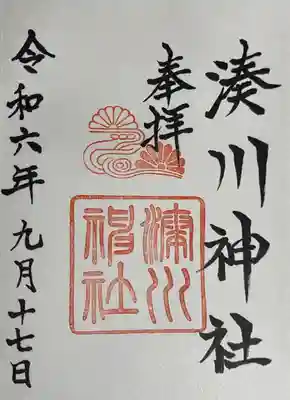 奉拝
湊川神社
湊川神社
令和六年九月十七日